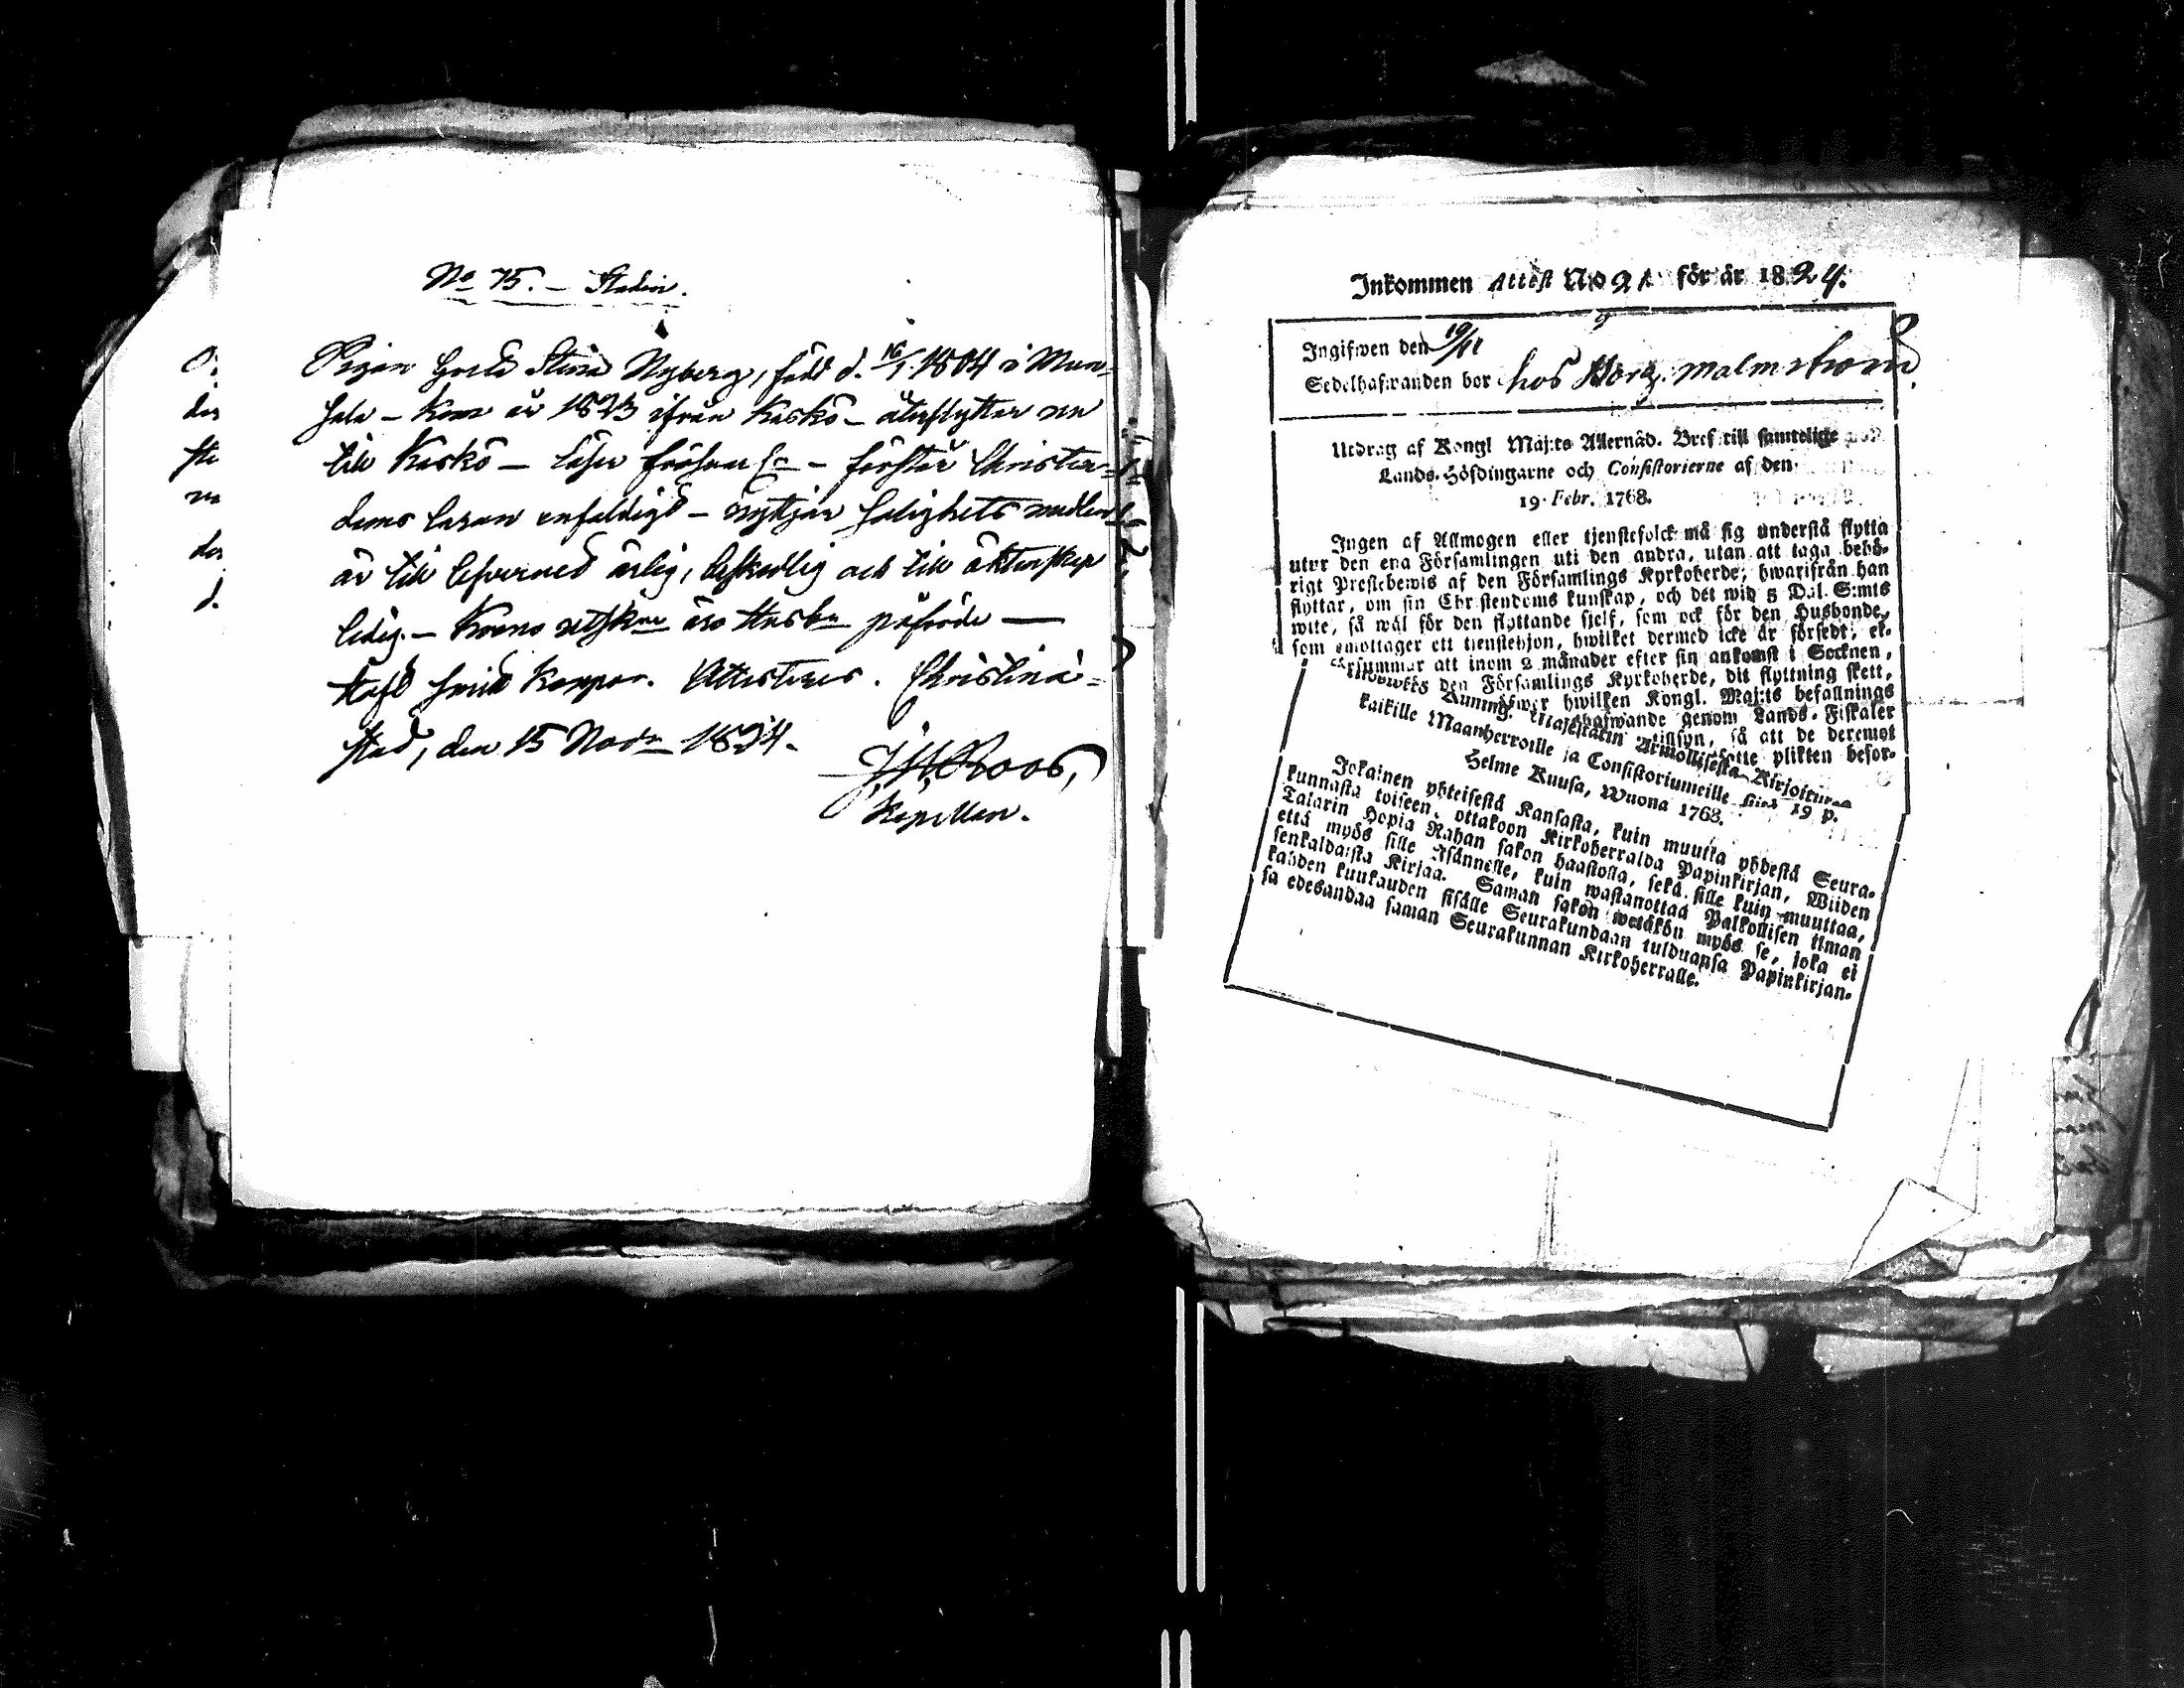 No 75. – Staden.
Pigan Greta Stina Nyberg, född d. 16/1 1804 i Mun-
sala – kom år 1823 ifrån Kaskö – återflyttar nu
till Kaskö – läser – förstår Christen-
doms läran enfaldigt – nyttjar salighets medlen
är till lefvernet ärlig, beskedlig och till äktenskap
ledig. – Krono äro påförde –
haft koppor. Attesteres. Christine-
stad, den 15 Novr 1824.
Roos,
Kapellan.
Inkommen Attest No 21 för år 1824.
Ingifwen den 19/11
Sedelhafwanden bor hos Borg. Malmström
Utdrag af Kongl Maj:ts Allernåd. Bref till samtelige
Lands-Höfdingarne och Consistorierne af den
19 Febr. 1768.
Ingen af Allmogen eller tjenstefolck må sig understå flytta
utur den ena Församlingen uti den andra, utan att taga behö-
rigt Prestebewis af den Församlings Kyrkoherde, hwarifrån han
flyttar, om sin Christendoms kunskap, och det wid 5 Dal. S:mts
wite, så wäl för den flyttande sjelf, som ock för den Husbonde,
som emottager ett tjenstehjon, hwilket dermed icke är försedt; el-
försummar att inom 2 månader efter sin ankomst i Socknen,
den Församlings Kyrkoherde, dit flyttning skett,
öfwer hwilken Kongl. Maj:ts befallnings
hafwande genom Lands-Fiskaler
så att de deremot
plikten befor-
Kuning. Majestätin Armollisesta Kirjoituxe
kaikille Maanherroille ja Consistoriumeille sinä 19 p.
Helme Kuusa, Wuona 1768.
Jokainen yhteisestä Kansasta, kuin muutta yhdestä Seura-
kunnasta toiseen, ottakoon Kirkoherralda Papinkirjan, Wiiden
Talarin Hopia Rahan sakon haastolla, sekä sille kuin muuttaa,
että myös sille Isännelle, kuin wastanottaa Palkollisen ilman
senkaldaista Kirjaa. Saman sakon wetäkön myös se, joka ei
kahden kuukauden sisälle Seurakundaan tulduansa Papinkirjan-
sa edesandaa saman Seurakunnan Kirkoherralle.